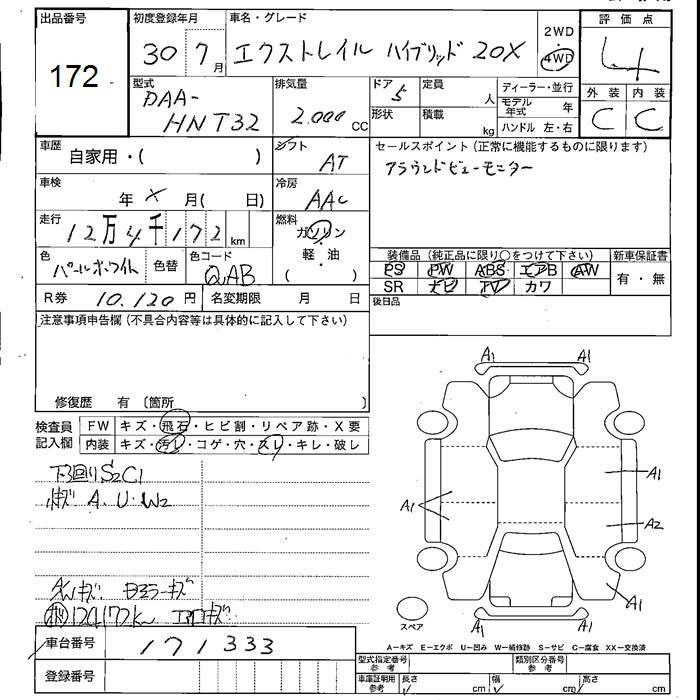 出品番号 初度登録年月 車名・グレード 評価点
172 30 7月 エクストレイル ハイブリッド 20X 2WD 4WD 4
型式 DAA-HNT32 排気量 2.000 CC ドア 5 定員 人 ディーラー・並行 外装 内装
形状 積載 kg モデル年式 年 C C
ハンドル 左・右
車歴 自家用・( ) シフト AT セールスポイント (正常に機能するものに限ります)
アラウンドビューモニター
車検 年 X 月( 日) 冷房 AAC
走行 12万4千172 km 燃料 ガソリン・軽・油 ( )
色 パールホワイト 色替 色コード QAB
装備品 (純正品に限り○をつけて下さい) 新車保証書
PS PW ABS エアB AW 有・無
SR ナビ TV カワ
R券 10.120 円 名変期限 月 日 後日品
注意事項申告欄 (不具合内容等は具体的に記入して下さい)
修復歴 有 〔箇所
検査員記入欄 FW キズ・飛石・ヒビ割・リペア跡・X要
内装 キズ・汚レ・コゲ・穴・スレ・キレ・破レ
下回りS2C1
小キズ A.U.W2
AWキズ
124,172km エアロキズ
A1 A1
A1
A1
A2
A1
A1 A1
スペア
A-キズ E-エクボ U-凹み W-補修跡 S-サビ C-腐食 XX-交換済
車台番号 171333
型式指定番号 参考 類別区分番号 参考
登録番号 車庫証明用 参考 長さ cm 幅 cm 高さ cm